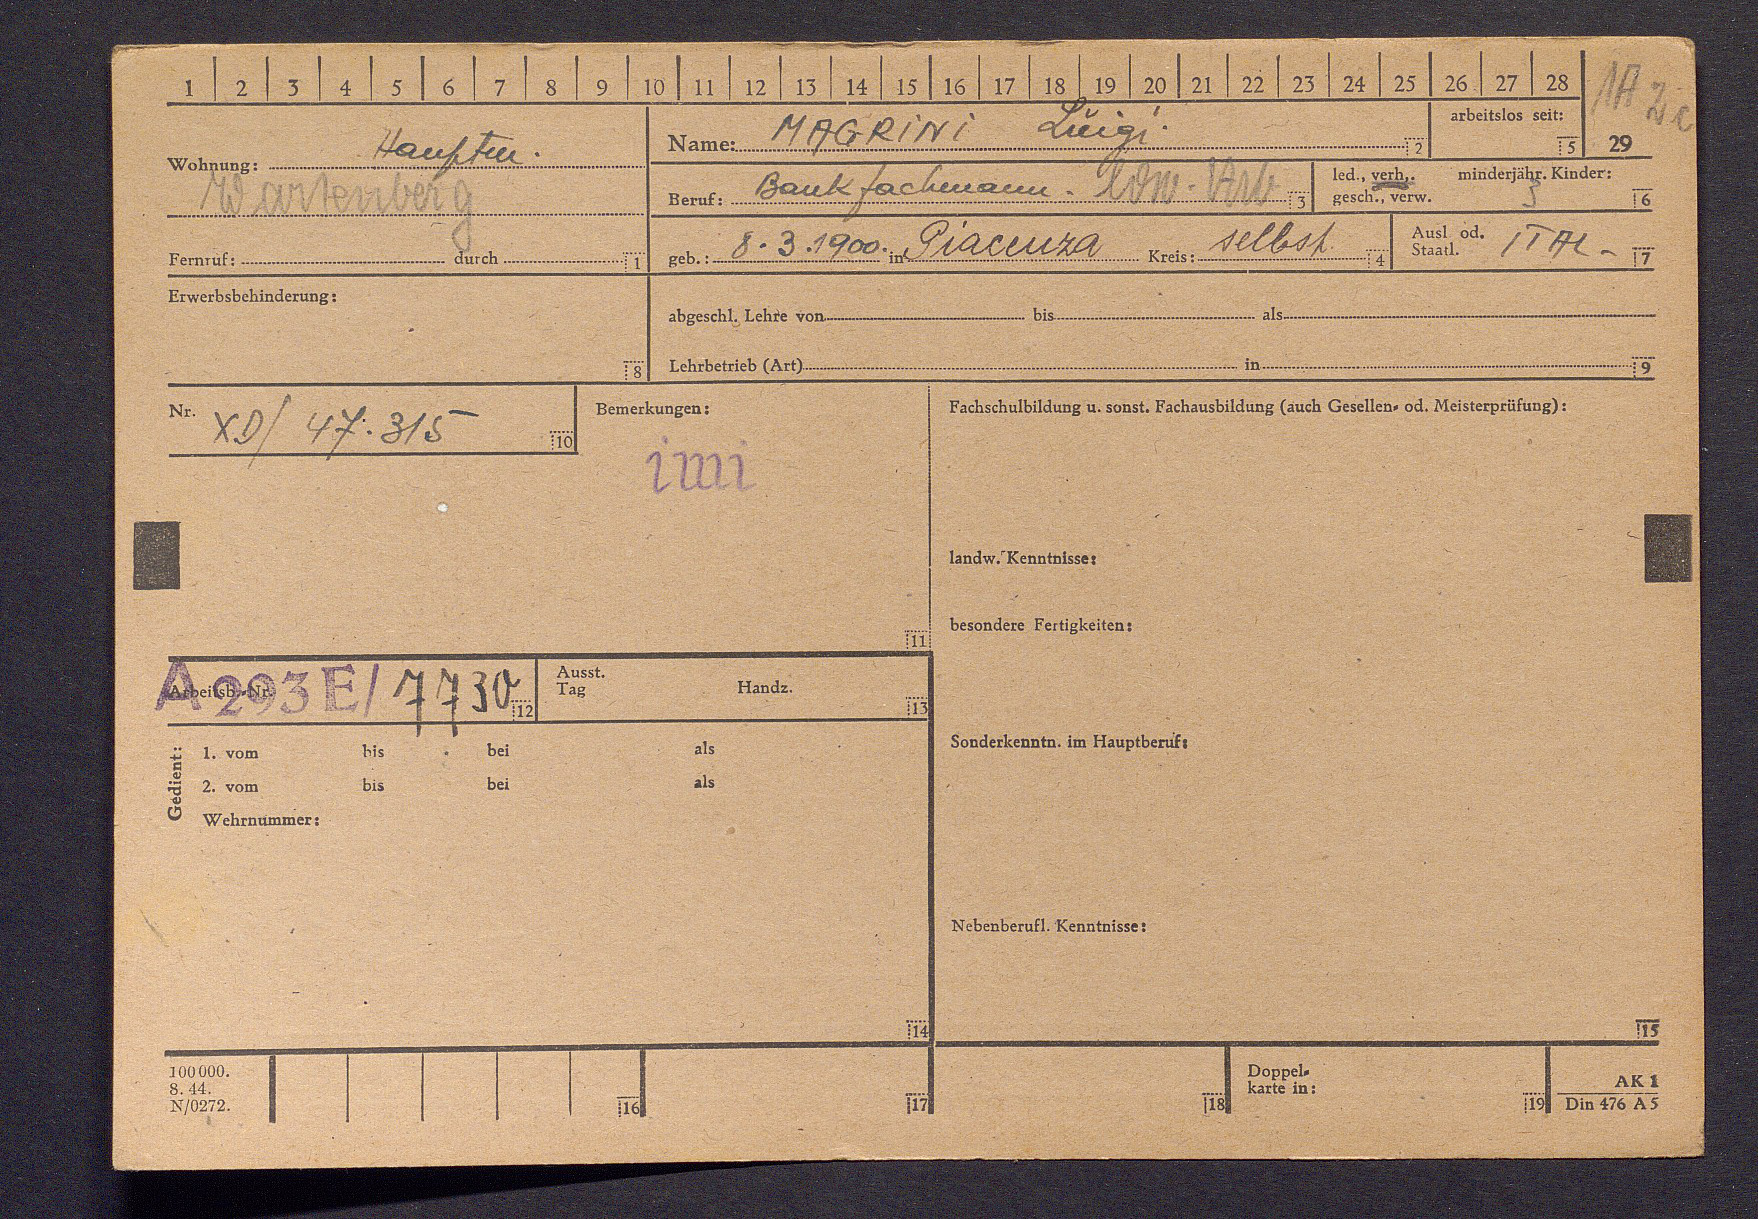 1 2 3 4 5 6 7 8 9 10 11 12 13 14 15 16 17 18 19 20 21 22 23 24 25 26 27 28 29
1A
Wohnung:
Wartenberg
Fernruf: durch 1
Name: MAGRINI Luigi. 2
arbeitslos seit: 5
Beruf: Bankfachmann. 3
led., verh., gesch., verw.
minderjähr. Kinder: 3 6
geb.: 8.3.1900. in Piacenza Kreis: selbst 4
Ausl od. Staatl. ITAL- 7
Erwerbsbehinderung: 8
abgeschl. Lehre von bis als
Lehrbetrieb (Art) in 9
Nr. XD/ 47.315 10
Bemerkungen:
imi
11
Fachschulbildung u. sonst. Fachausbildung (auch Gesellen- od. Meisterprüfung):
landw. Kenntnisse:
besondere Fertigkeiten:
Sonderkenntn. im Hauptberuf:
Nebenberufl. Kenntnisse:
15
Arbeitsb.-Nr. A 293 E/ 7730 12
Ausst. Tag Handz. 13
Gedient:
1. vom bis bei als
2. vom bis bei als
Wehrnummer:
14
100000.
8. 44.
N/0272.
16 17 18
Doppel-
karte in: 19
AK 1
Din 476 A 5